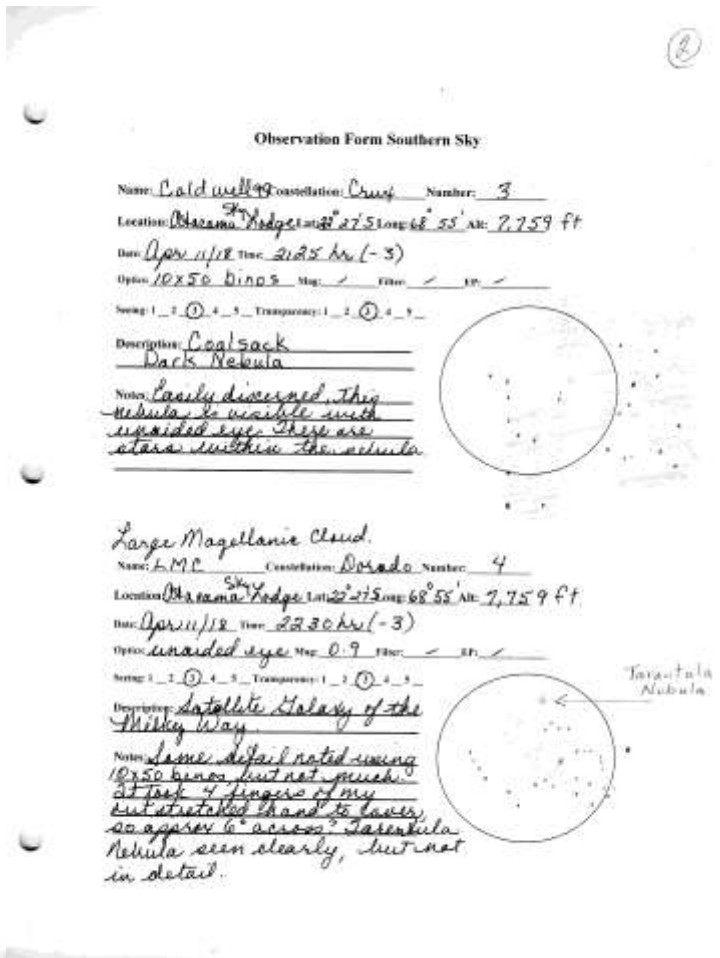 2
Observation Form Southern Sky
Name: Caldwell 99 Constellation: Crux Number: 3
Location: Atacama Sky Lodge Lat: 22° 27' S Long: 68° 55' Alt: 7,759 ft
Date: Apr 11/18 Time: 2125 hr (-3)
Optics: 10x50 binos Mag: / Filter: / EP: /
Seeing: 1 _ 2 (3) 4 _ 5 _ Transparency: 1 _ 2 (3) 4 _ 5 _
Description: Coalsack
Dark Nebula
Notes: Easily discerned, this
nebula is visible with
unaided eye. There are
stars within the nebula
Large Magellanic Cloud.
Name: LMC Constellation: Dorado Number: 4
Location: Atacama Sky Lodge Lat: 22° 27' S Long: 68° 55' Alt: 7,759 ft
Date: Apr 11/18 Time: 2230 hr (-3)
Optics: unaided eye Mag: 0.9 Filter: / EP: /
Seeing: 1 _ 2 (3) 4 _ 5 _ Transparency: 1 _ 2 (3) 4 _ 5 _
Tarantula
Nebula
Description: Satellite Galaxy of the
Milky Way.
Notes: Some detail noted using
10x50 binos, but not much.
It took 4 fingers of my
outstretched hand to cover,
so approx 6° across? Tarentula
Nebula seen clearly, but not
in detail.